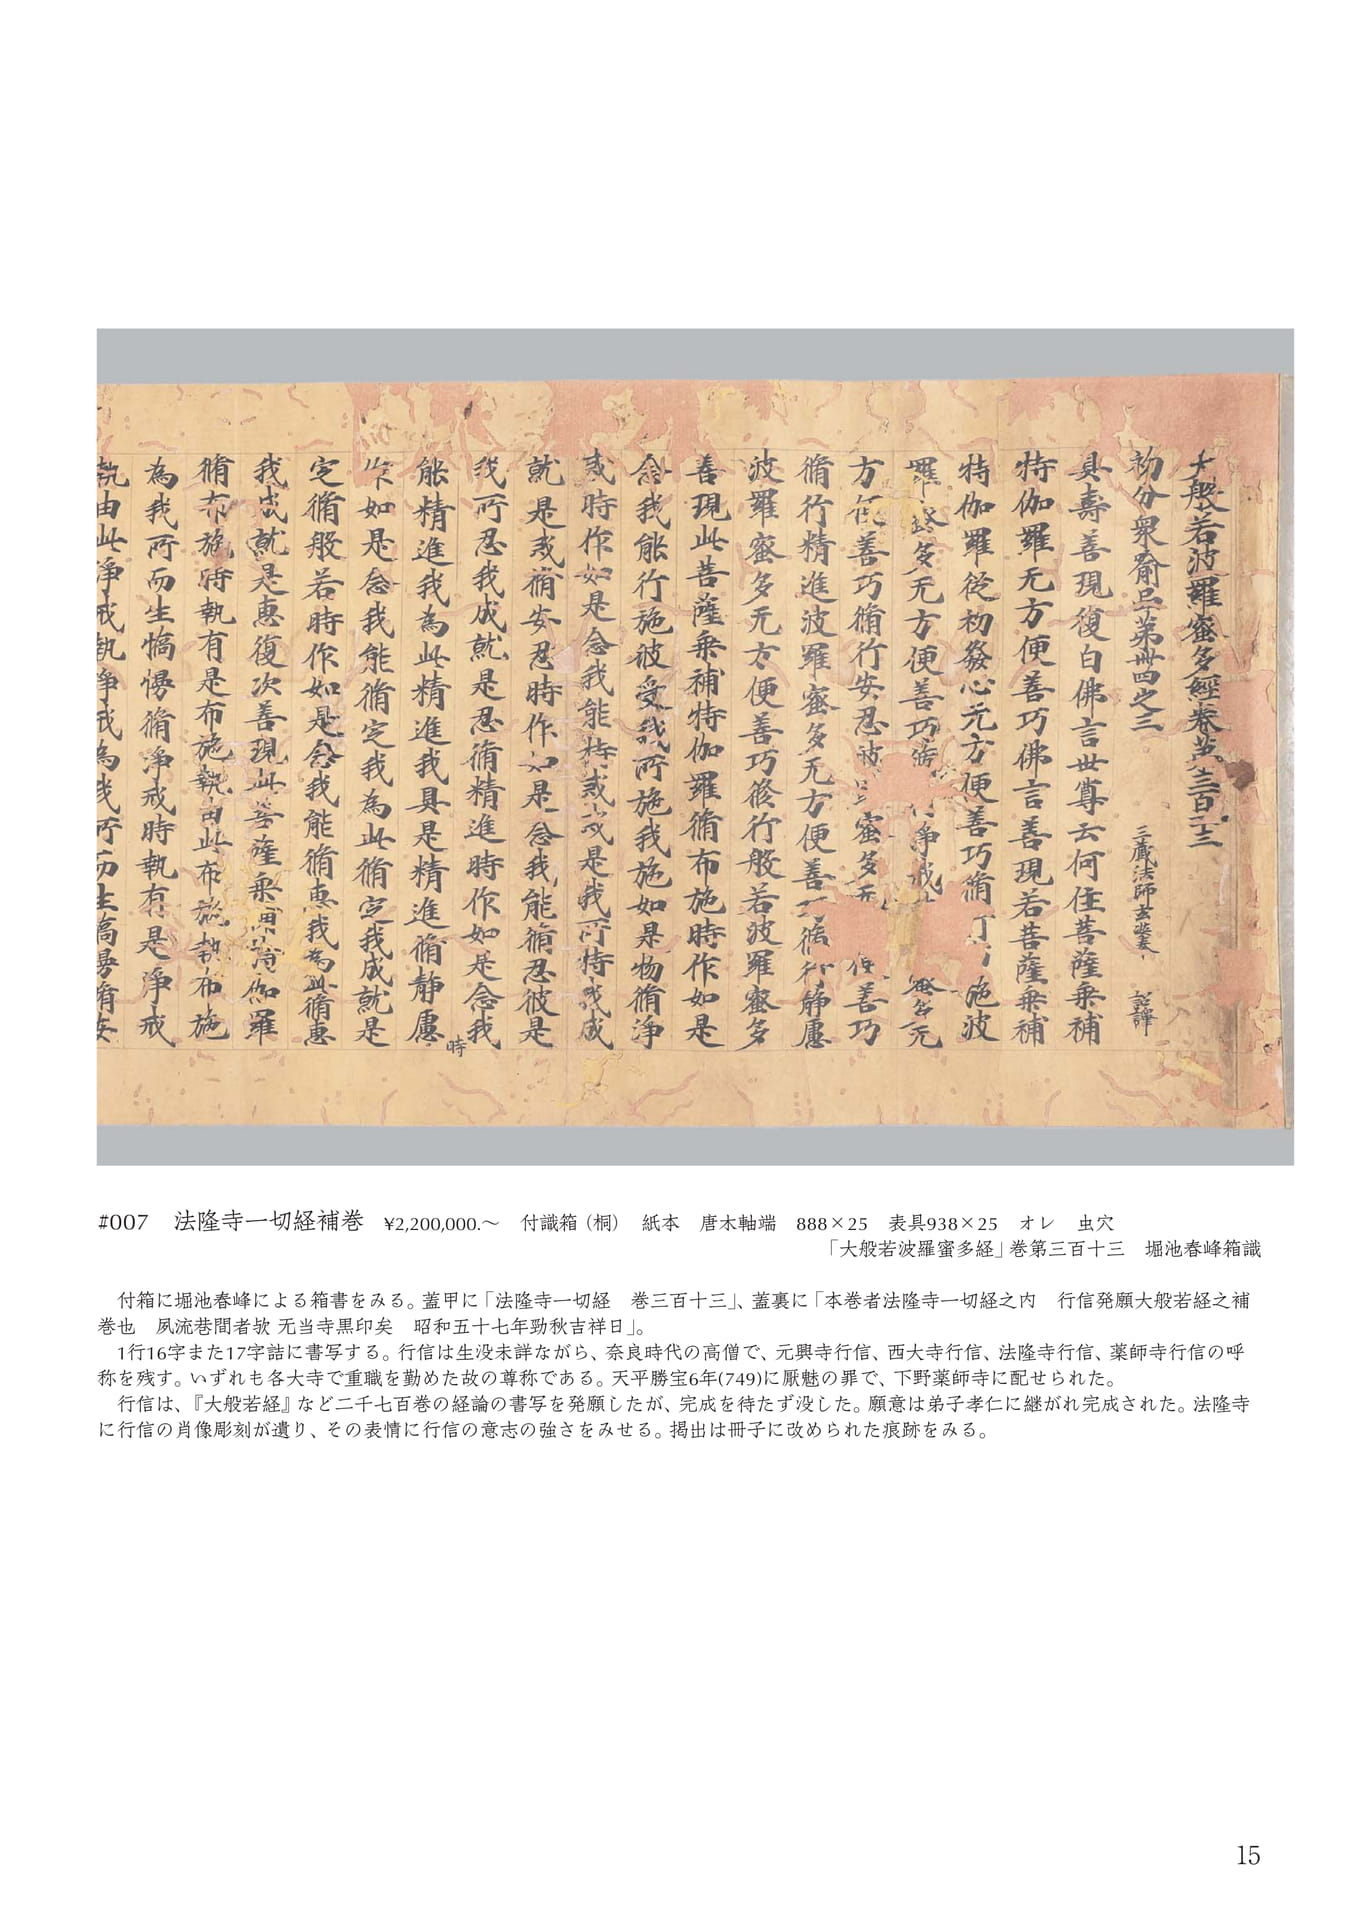 大般若波羅蜜多經卷第三百一十三
初分衆喻品第卌四之三 三藏法師玄奘奉 詔譯
具壽善現復白佛言世尊云何住菩薩乗補
特伽羅无方便善巧佛言善現若菩薩乗補
特伽羅從初發心无方便善巧脩行施波
羅蜜多无方便善巧脩行淨戒蜜多无
方便善巧脩行安忍波蜜多无便善巧
脩行精進波羅蜜多无方便善巧脩行静慮
波羅蜜多无方便善巧脩行般若波羅蜜多
善現此菩薩乗補特伽羅脩布施時作如是
念我能行施彼受我所施我施如是物脩淨
戒時作如是念我能持戒戒是我所持我成
就是戒脩安忍時作如是念我能脩忍彼是
我所忍我成就是忍脩精進時作如是念我
能精進我為此精進我具是精進脩静慮
時
作如是念我能脩定我為此脩定我成就是
定脩般若時作如是念我能脩惠我為此脩惠
我成就是惠復次善現此菩薩乗補特伽羅
脩布施時執有是布施執由此布施執布施
為我所而生憍慢脩淨戒時執有是淨戒
執由此淨戒執淨戒為我所而生憍慢脩安
#007 法隆寺一切経補巻 ¥2,200,000.〜 付識箱（桐） 紙本 唐木軸端 888×25 表具938×25 オレ 虫穴
「大般若波羅蜜多経」巻第三百十三 堀池春峰箱識
付箱に堀池春峰による箱書をみる。蓋甲に「法隆寺一切経 巻三百十三」、蓋裏に「本巻者法隆寺一切経之内 行信発願大般若経之補
巻也 夙流巷間者欤 无当寺黒印矣 昭和五十七年勁秋吉祥日」。
1行16字また17字詰に書写する。行信は生没未詳ながら、奈良時代の高僧で、元興寺行信、西大寺行信、法隆寺行信、薬師寺行信の呼
称を残す。いずれも各大寺で重職を勤めた故の尊称である。天平勝宝6年(749)に厭魅の罪で、下野薬師寺に配せられた。
行信は、『大般若経』など二千七百巻の経論の書写を発願したが、完成を待たず没した。願意は弟子孝仁に継がれ完成された。法隆寺
に行信の肖像彫刻が遺り、その表情に行信の意志の強さをみせる。掲出は冊子に改められた痕跡をみる。
15